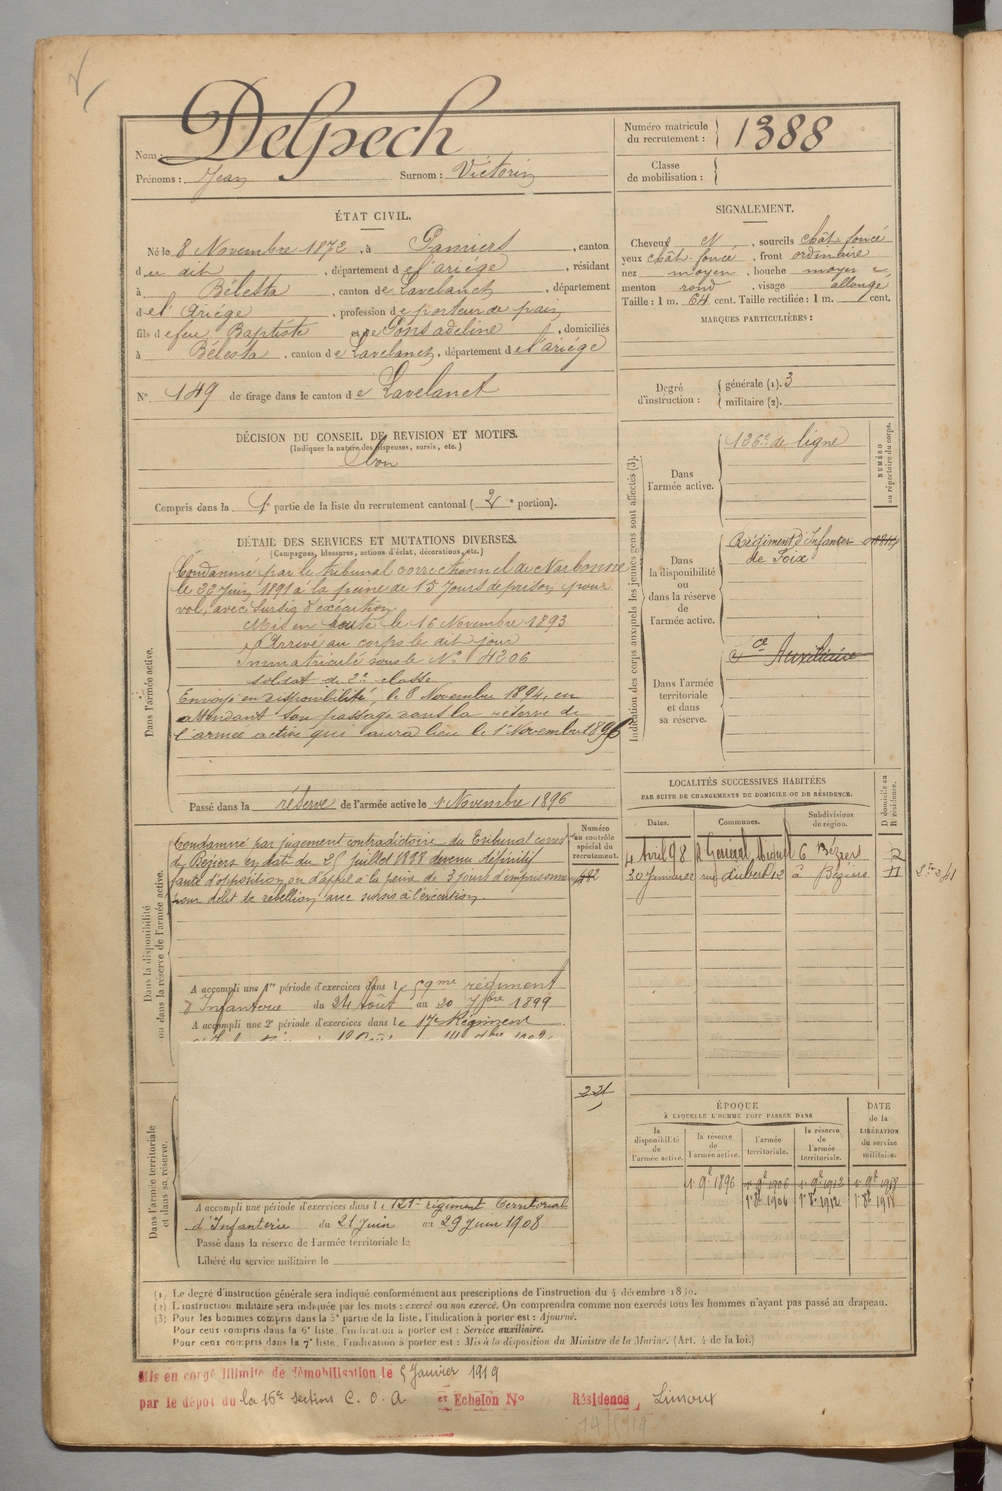 Nom : Delpech
Prénoms : Jean Surnom : Victorin
Numéro matricule du recrutement : 1388
Classe de mobilisation :
ÉTAT CIVIL.
Né le 8 Novembre 1872, à Pamiers, canton
du dit, département de l'ariége, résidant
à Bélesta, canton de Lavelanet, département
de l'Ariége, profession de porteur de pain
fils de feu Baptiste et de Pons adeline, domiciliés
à Bélesta, canton de Lavelanet, département de l'ariége
N° 149 de tirage dans le canton de Lavelanet
DÉCISION DU CONSEIL DE REVISION ET MOTIFS.
(Indiquer la nature des dispenses, sursis, etc.)
Bon
Compris dans la 1e partie de la liste du recrutement cantonal (2e portion).
SIGNALEMENT.
Cheveux N, sourcils chât. foncé
yeux chât. foncé, front ordinaire
nez moyen, bouche moyenne
menton rond, visage allongé
Taille : 1 m. 64 cent. Taille rectifiée : 1 m. cent.
MARQUES PARTICULIÈRES :
Degré d'instruction : générale (1). 3
militaire (2).
DÉTAIL DES SERVICES ET MUTATIONS DIVERSES.
(Campagnes, blessures, actions d'éclat, décorations, etc.)
Dans l'armée active.
Condamné par le tribunal correctionnel de Narbonne
le 22 Juin 1891 à la peine de 15 Jours de prison pour
vol, avec sursis d'exécution
Mis en route le 16 Novembre 1893
Arrivé au corps le dit jour
Immatriculé sous le N° 4206
soldat de 2e classe
Envoyé en disponibilité, le 8 Novembre 1894, en
attendant son passage dans la réserve de
l'armée active qui aura lieu le 1er Novembre 1896
Passé dans la réserve de l'armée active le 1 Novembre 1896
Indication des corps auxquels les jeunes gens sont affectés (3).
NUMÉRO au répertoire du corps.
Dans l'armée active.
126e de ligne
Dans la disponibilité ou dans la réserve de l'armée active.
Régiment d'Infanterie
de Foix
Dans l'armée territoriale et dans sa réserve.
Auxiliaire
LOCALITÉS SUCCESSIVES HABITÉES
PAR SUITE DE CHANGEMENTS DE DOMICILE OU DE RÉSIDENCE.
Dates. Communes. Subdivisions de région. D domicile ou R résidence.
4 Avril 98 R Général Miquel 6 Bezier
Béziers
Numéro au contrôle spécial du recrutement.
Dans la disponibilité ou dans la réserve de l'armée active.
Condamné par jugement contradictoire du Tribunal correl
de Beziers en date du 25 juillet 1898 devenu définitif
faute d'opposition ou d'appel à la peine de 3 jours d'emprisonnement
pour délit de rebellion avec sursis à l'exécution
A accompli une 1re période d'exercices dans le 59me régiment
d'Infanterie du 24 Août au 20 7bre 1899
A accompli une 2e période d'exercices dans le 17e Régiment
221
Dans l'armée territoriale et dans sa réserve.
A accompli une période d'exercices dans le 121e régiment territorial
d'Infanterie du 21 Juin au 29 Juin 1908
Passé dans la réserve de l'armée territoriale le
Libéré du service militaire le
ÉPOQUE
À LAQUELLE L'HOMME DOIT PASSER DANS
la disponibilité de l'armée active.
la réserve de l'armée active.
l'armée territoriale.
la réserve de l'armée territoriale.
DATE de la LIBÉRATION du service militaire.
1er 9e 1896 1er 9e 1906 1er 9e 1912 1er 9e 1918
1er 8e 1906 1er 8e 1912 1er 8e 1918
(1) Le degré d'instruction générale sera indiqué conformément aux prescriptions de l'instruction du 4 décembre
(2) L'instruction militaire sera indiquée par les mots : exercé ou non exercé. On comprendra comme non exercés tous les hommes n'ayant pas passé au drapeau.
(3) Pour les hommes compris dans la 5e partie de la liste, l'indication à porter est : Ajourné.
Pour ceux compris dans la 6e liste, l'indication à porter est : Service auxiliaire.
Pour ceux compris dans la 7e liste, l'indication à porter est : Mis à la disposition du Ministre de la Marine. (Art. 4 de la loi.)
Mis en congé illimité de démobilisation le 5 Janvier 1919
par le dépôt du la 16e section C. O. A et Echelon N° Résidence Limoux